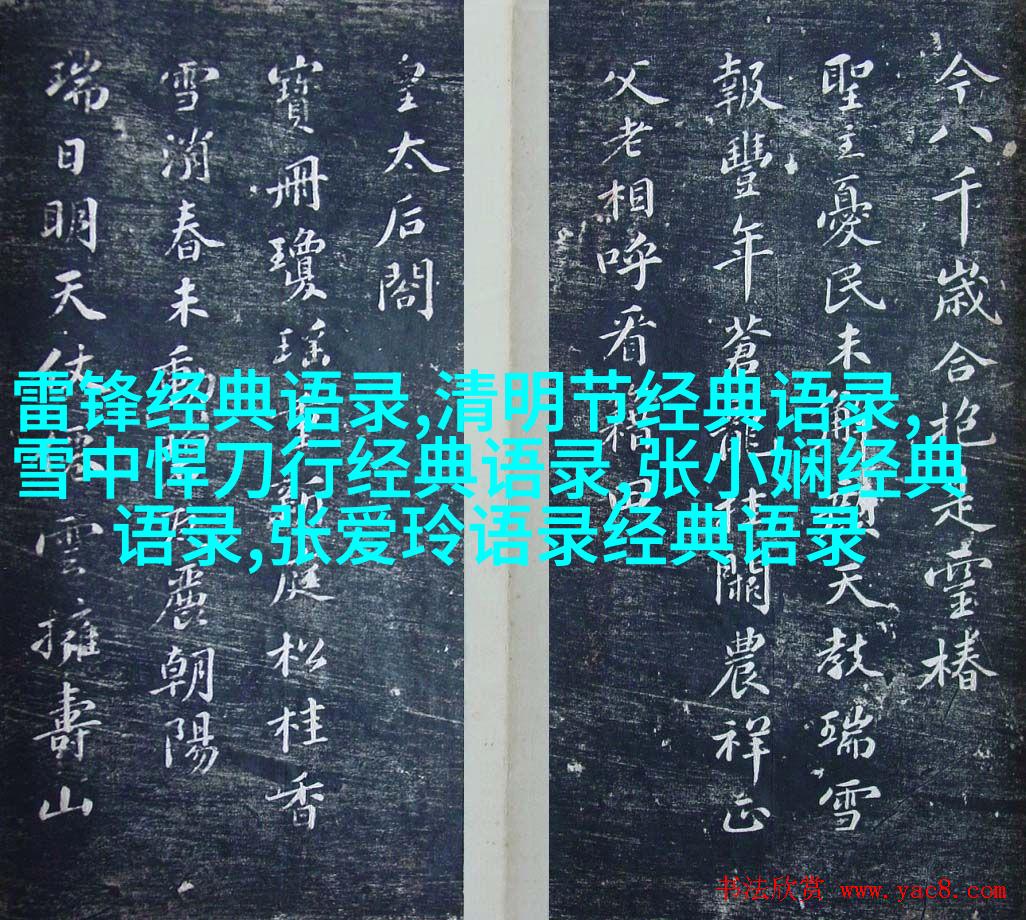 今八千歲合抱是靈椿
聖主憂民未解天教瑞雪
報豐年蒼龍掛闕農祥正
父老相呼看籍田
皇太后閤
寶冊瓊瑤庭松桂香
雪消春未動麗朝陽
瑞日明天仗雲擁壽山
雷锋经典语录,清明节经典语录,
雪中悍刀行经典语录,张小娴经典
语录,张爱玲语录经典语录
书法欣赏 www.yac8.com